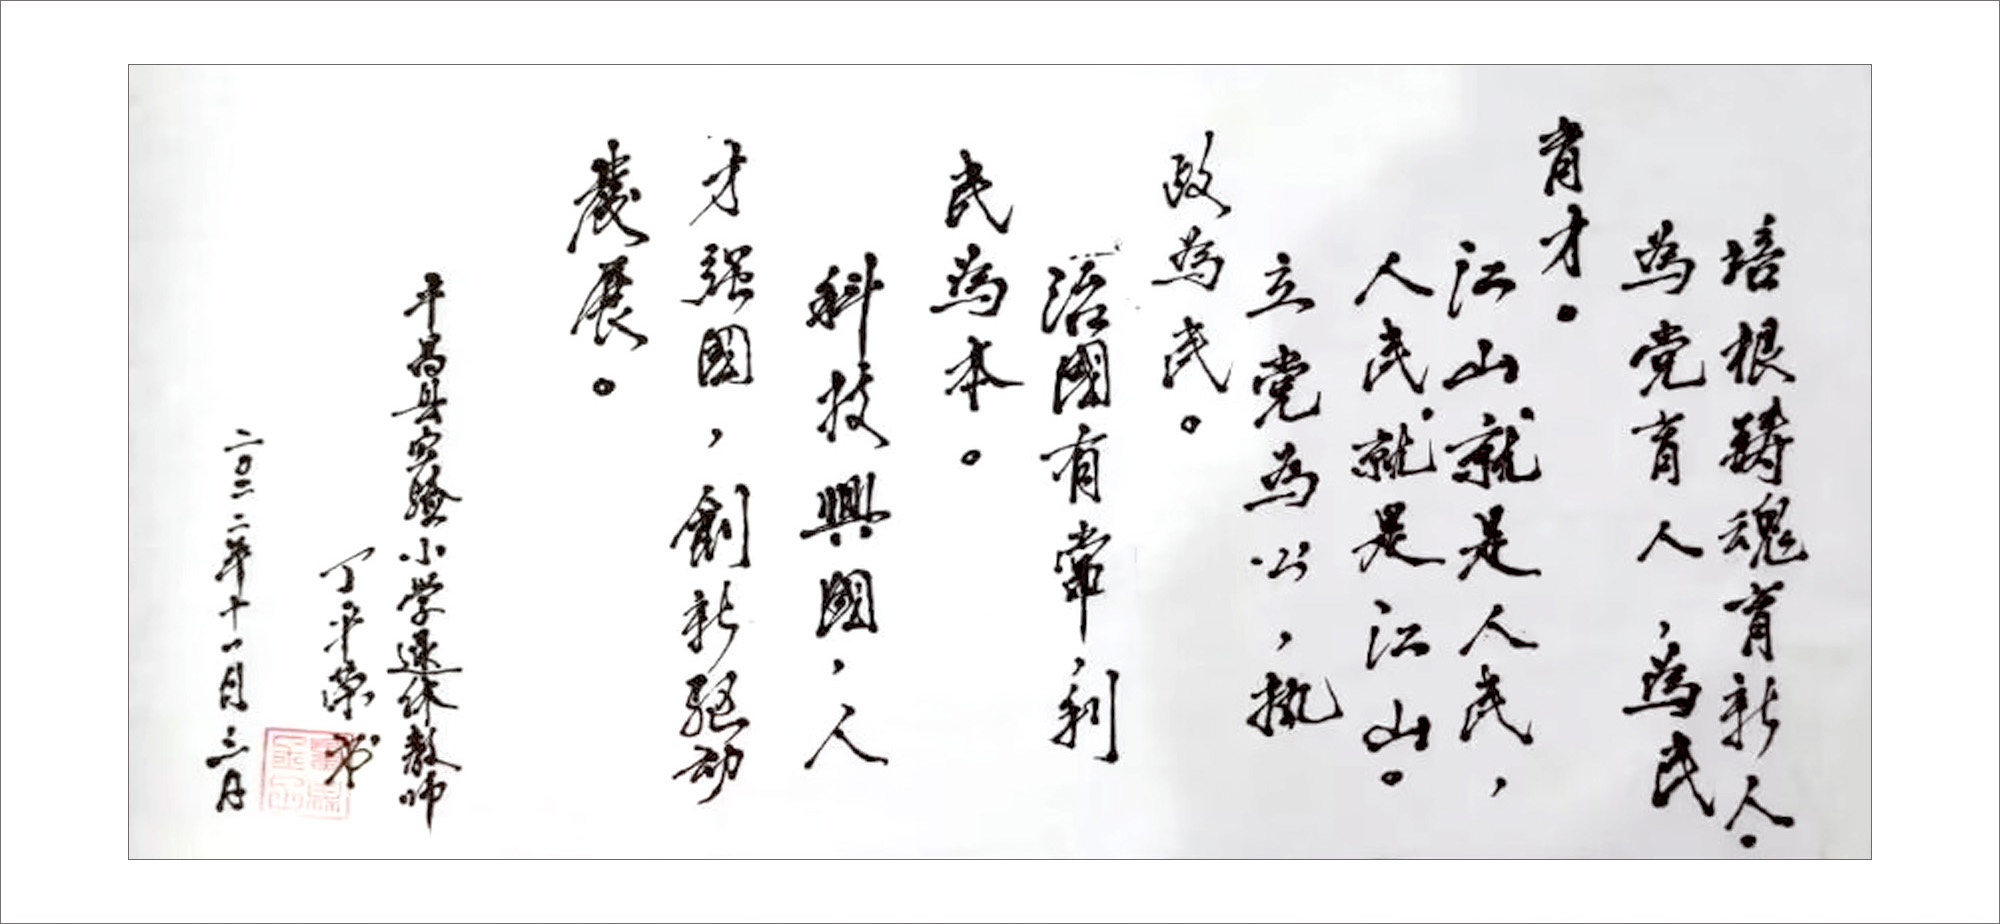 培根铸魂育新人。
為党育人,為民
育才。
江山就是人民,
人民就是江山。
立党為公,执
政為民。
治國有常,利
民為本。
科技興國,人
才强国,創新驱动
發展。
平昌县实验小学退休教师
丁平荣书
二〇二二年十一月三日